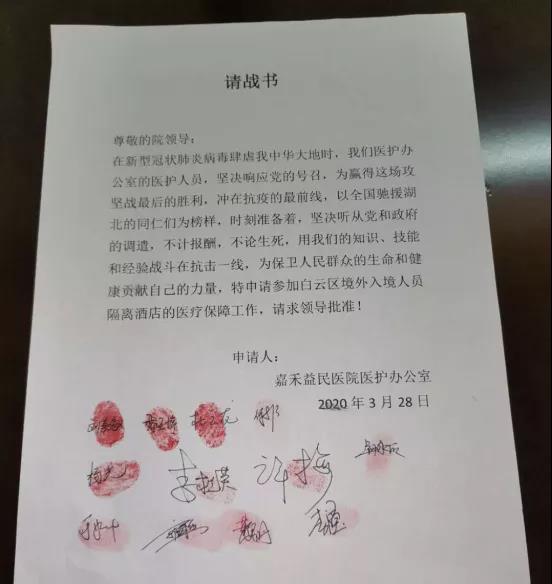 请战书
尊敬的院领导：
在新型冠状肺炎病毒肆虐我中华大地时，我们医护办
公室的医护人员，坚决响应党的号召，为赢得这场攻
坚战最后的胜利，冲在抗疫的最前线，以全国驰援湖
北的同仁们为榜样，时刻准备着，坚决听从党和政府
的调遣，不计报酬，不论生死，用我们的知识、技能
和经验战斗在抗击一线，为保卫人民群众的生命和健
康贡献自己的力量，特申请参加白云区境外入境人员
隔离酒店的医疗保障工作，请求领导批准！
申请人：
嘉禾益民医院医护办公室
2020 年 3 月 28 日
许梅